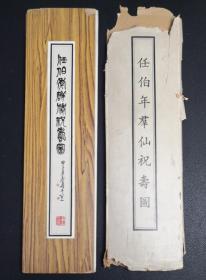 任伯年群仙祝壽圖
任伯年羣仙祝壽圖